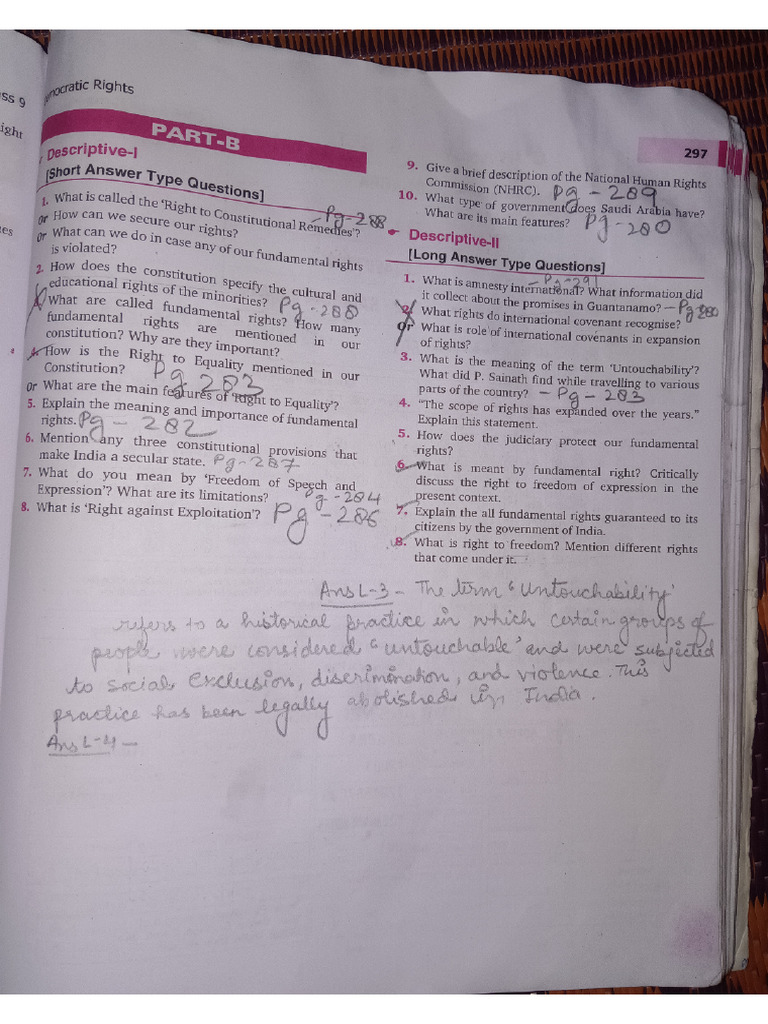 ss 9
ight
Democratic Rights
PART-B
297
Descriptive-I
[Short Answer Type Questions]
1. What is called the 'Right to Constitutional Remedies'? – Pg-288
or How can we secure our rights?
or What can we do in case any of our fundamental rights
is violated?
2. How does the constitution specify the cultural and
educational rights of the minorities? Pg-288
What are called fundamental rights? How many
fundamental rights are mentioned in our
constitution? Why are they important?
4. How is the Right to Equality mentioned in our
Constitution? Pg 283
or What are the main features of 'Right to Equality'?
5. Explain the meaning and importance of fundamental
rights. Pg – 282
6. Mention any three constitutional provisions that
make India a secular state. Pg-287
7. What do you mean by 'Freedom of Speech and
Expression'? What are its limitations? Pg-284
8. What is 'Right against Exploitation'? Pg – 286
9. Give a brief description of the National Human Rights
Commission (NHRC). Pg – 289
10. What type of government does Saudi Arabia have?
What are its main features? Pg-280
Descriptive-II
[Long Answer Type Questions]
1. What is amnesty international? What information did – Pg-291
it collect about the promises in Guantanamo? – Pg 280
2. What rights do international covenant recognise?
or What is role of international covenants in expansion
of rights?
3. What is the meaning of the term 'Untouchability'?
What did P. Sainath find while travelling to various
parts of the country? – Pg – 283
4. "The scope of rights has expanded over the years."
Explain this statement.
5. How does the judiciary protect our fundamental
rights?
6. What is meant by fundamental right? Critically
discuss the right to freedom of expression in the
present context.
7. Explain the all fundamental rights guaranteed to its
citizens by the government of India.
8. What is right to freedom? Mention different rights
that come under it.
Ans L-3 – The term 'Untouchability'
refers to a historical practice in which certain groups of
people were considered 'untouchable' and were subjected
to social exclusion, discrimination, and violence. This
practice has been legally abolished in India.
Ans L-4 –